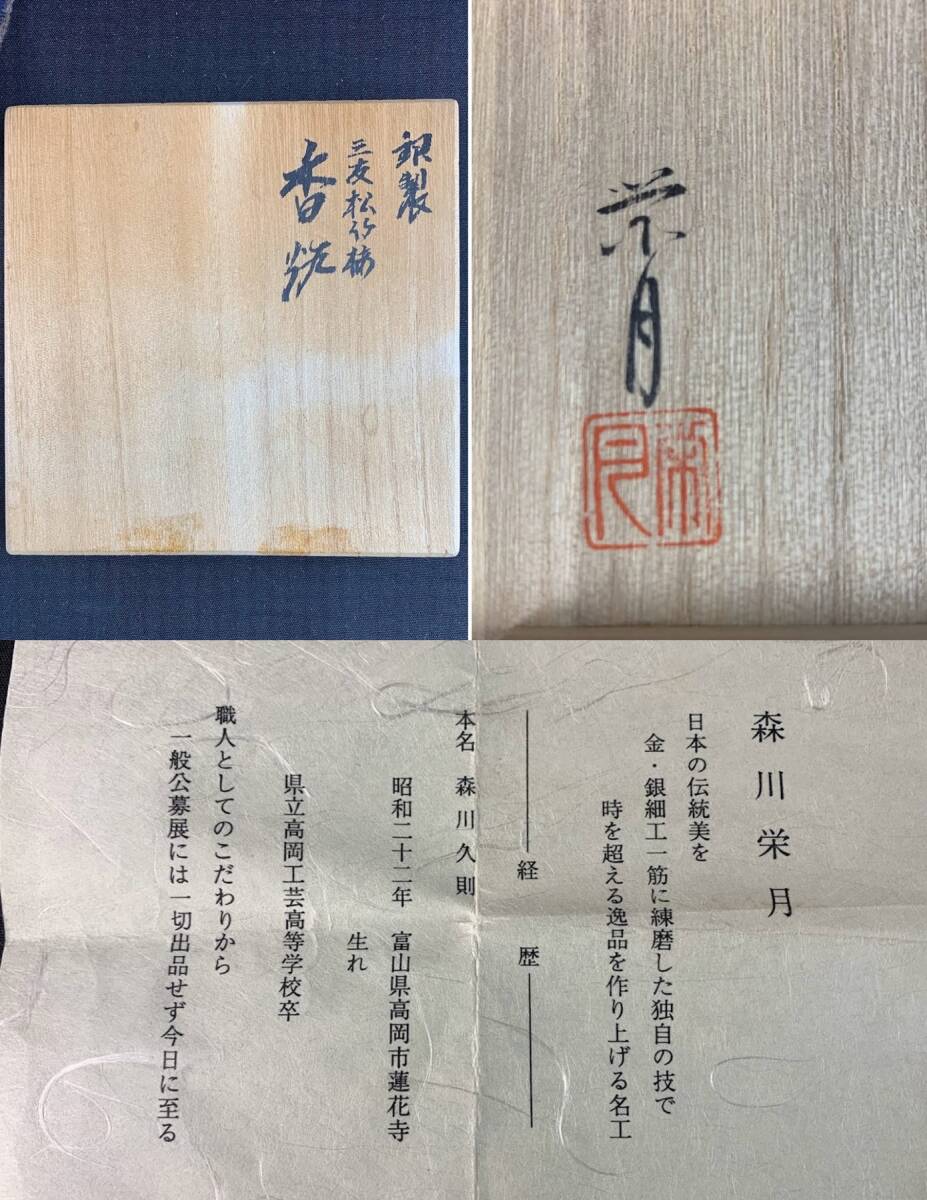 銀製
三友松竹梅
香炉
栄月
栄月
森川栄月
日本の伝統美を
金・銀細工一筋に練磨した独自の技で
時を超える逸品を作り上げる名工
経歴
本名 森川久則
昭和二十二年 富山県高岡市蓮花寺
生れ
県立高岡工芸高等学校卒
職人としてのこだわりから
一般公募展には一切出品せず今日に至る